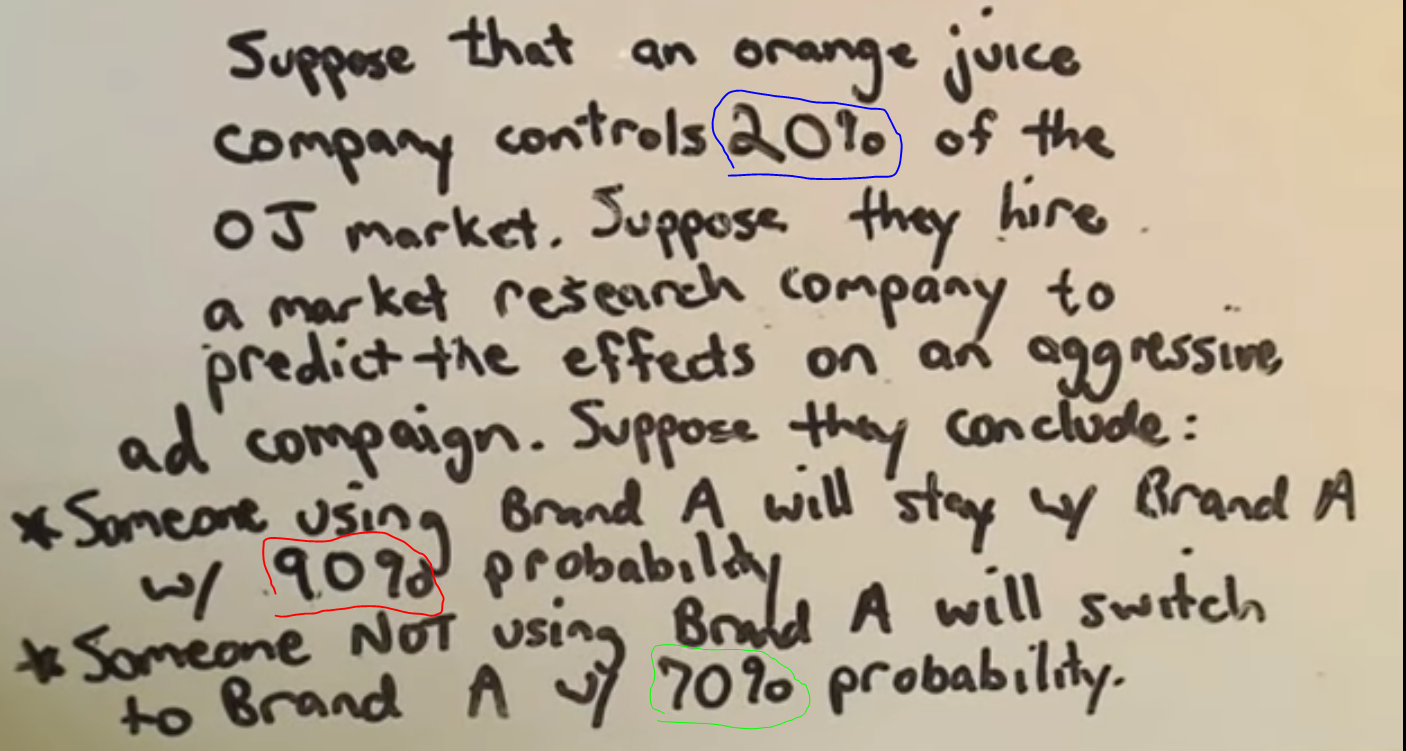 Suppose that an orange juice
company controls 20% of the
OJ market. Suppose they hire
a market research company to
predict the effects on an aggressive
ad compaign. Suppose they conclude:
*Someone using Brand A will stay w/ Brand A
w/ 90% probability
*Someone NOT using Brand A will switch
to Brand A w/ 70% probability.